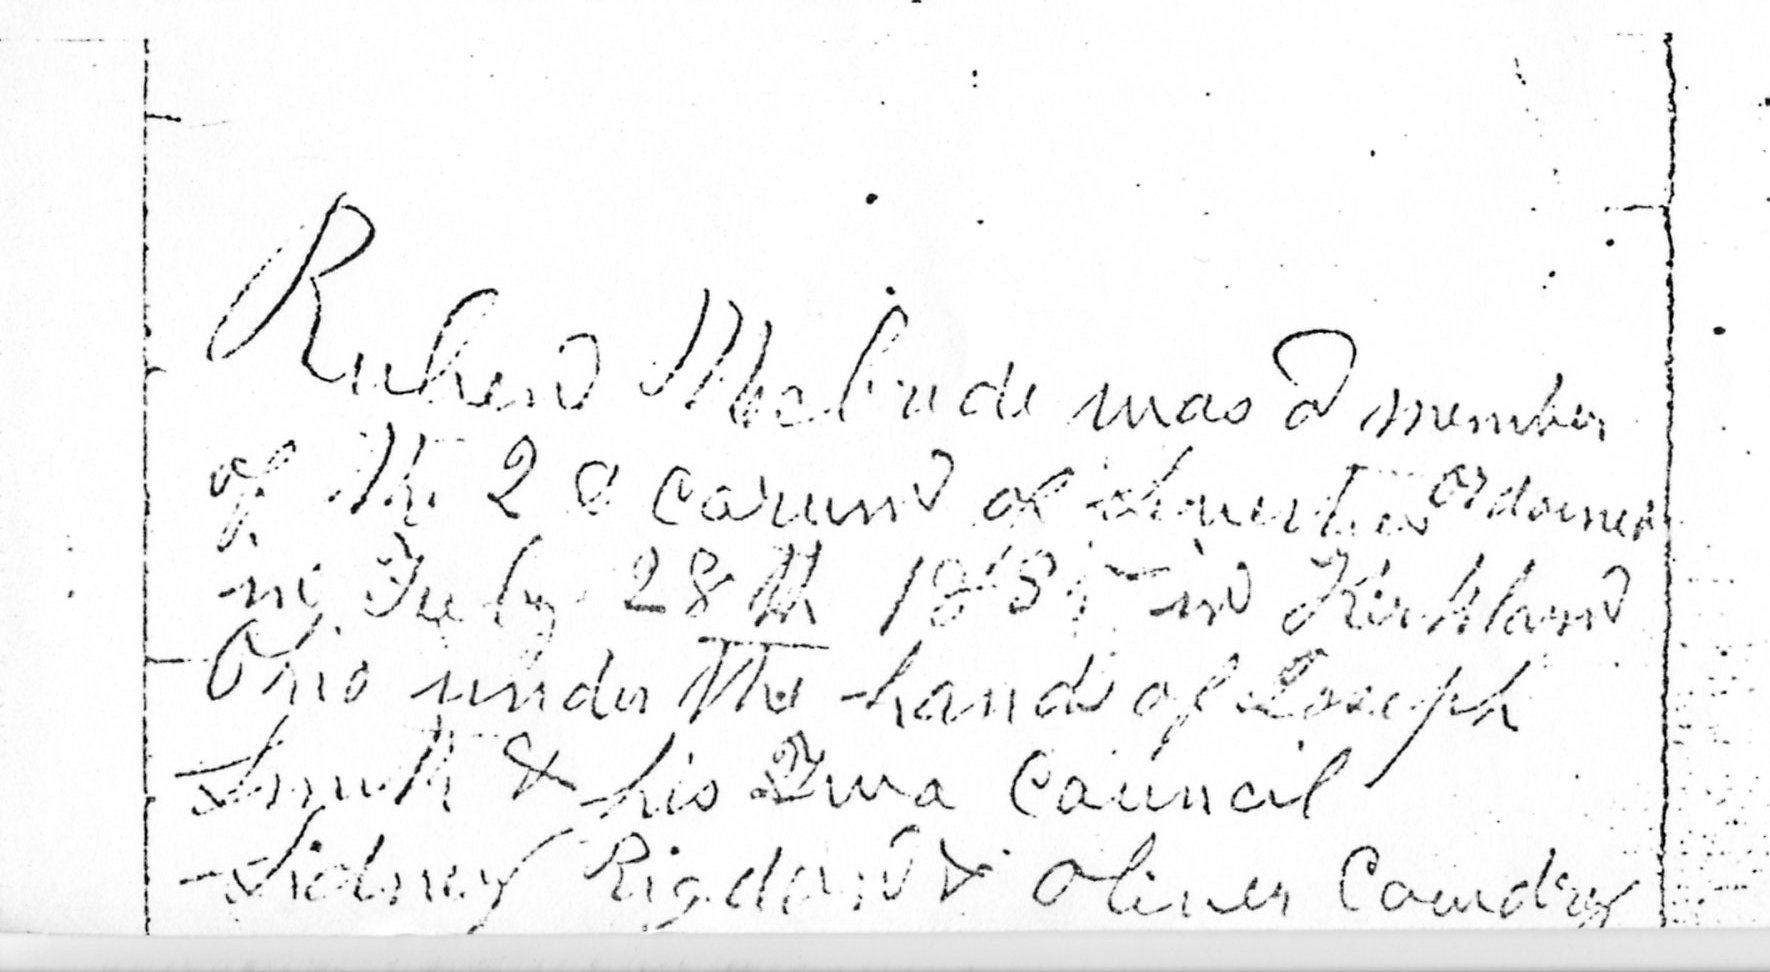 Ruben Mcbride was a member
of the 2d Corum of Seventies ordained
in July 28th 1835 in Kirtland
Ohio under the hands of Joseph
Smith & his Two Council
Sidney Rigdon & Oliver Cowdry